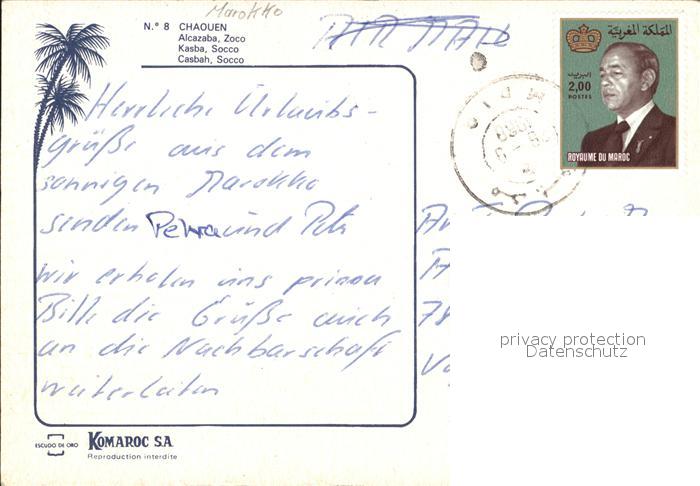 Marokko
N.° 8 CHAOUEN
Alcazaba, Zoco
Kasba, Socco
Casbah, Socco
AIR MAIL
المملكة المغربية
البريد
2,00
POSTES
ROYAUME DU MAROC
Herrliche Urlaubs-
grüße aus dem
sonnigen Marokko
senden Petra und
wir erholen uns prima
Bitte die Grüße auch
an die Nachbarschaft
weiterleiten
78
privacy protection
Datenschutz
ESCUDO DE ORO
KOMAROC S.A.
Reproduction interdite